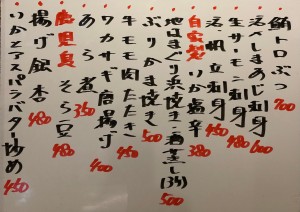 鮪トロぶつ 700
活〆しまあじ刺身 600
生サーモン刺身 480
活〆帆立刺身 450
自家製いか塩辛 380
地はまぐり浜焼き・酒蒸し(3ヶ) 500
ぶりかま焼き 500
牛モモ肉たたき 450
ワカサギ唐揚げ 400
あら煮 350
鹿児島そら豆 480
揚げ銀杏 480
いかとアスパラバター炒め 450